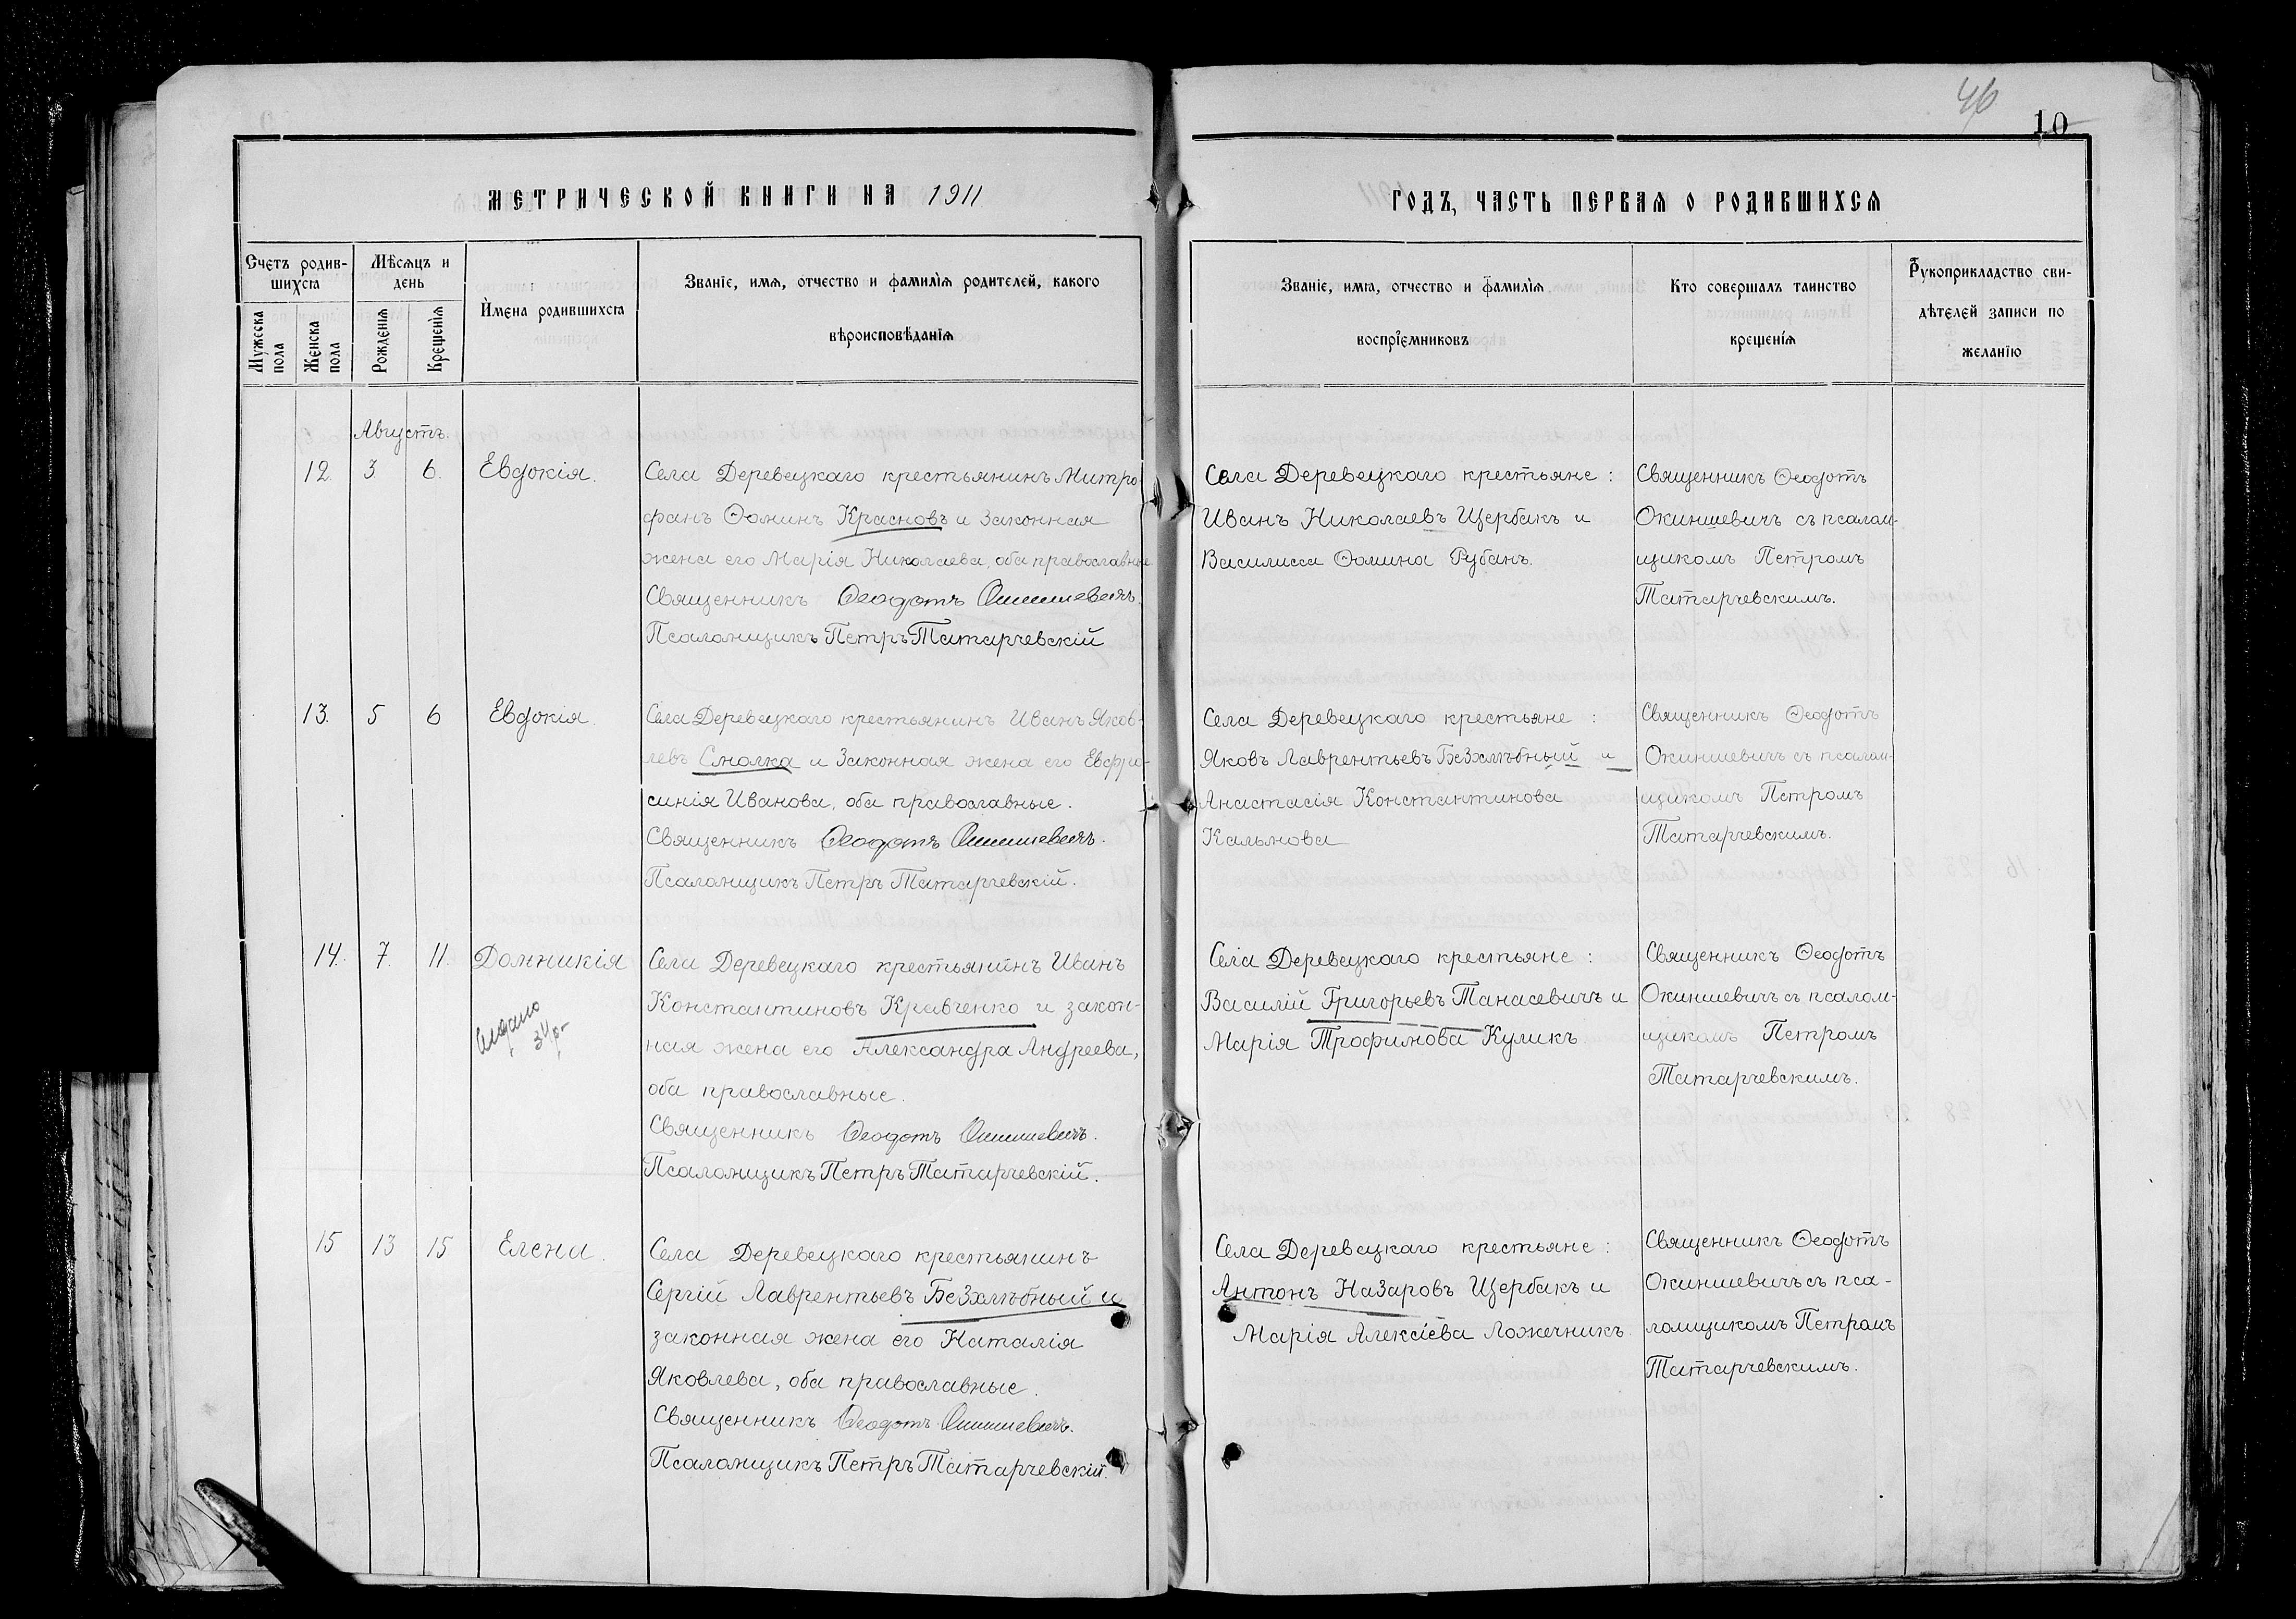 46
10
МЕТРИЧЕСКОЙ КНИГИ НА 1911
ГОДЪ, ЧАСТЬ ПЕРВАЯ О РОДИВШИХСЯ
Счетъ родив-
шихся
Мѣсяцъ и
день
Мужеска
пола
Женска
пола
Рожденія
Крещенія
Имена родившихся
Званіе, имя, отчество и фамилія родителей, какого
вѣроисповѣданія
Званіе, имя, отчество и фамилія
воспріемниковъ
Кто совершалъ таинство
крещенія
Рукоприкладство сви-
дѣтелей записи по
желанію
Августъ.
12. 3 6. Евдокія.
Села Деревецкаго крестьянинъ Митро-
фанъ Ѳоминъ Красновъ и законная
жена его Марія Николаева, оба православные
Священникъ Ѳеодотъ Окиншевичъ.
Псаломщикъ Петръ Татарчевскій
Села Деревецкаго крестьяне:
Иванъ Николаевъ Щербакъ и
Василисса Ѳомина Рубанъ.
Священникъ Ѳеодотъ
Окиншевичъ съ псалом-
щикомъ Петромъ
Татарчевскимъ.
13. 5 6 Евдокія.
Села Деревецкаго крестьянинъ Иванъ Яков-
левъ Смолка и законная жена его Евфро-
синія Иванова, оба православные.
Священникъ Ѳеодотъ Окиншевичъ.
Псаломщикъ Петръ Татарчевскій.
Села Деревецкаго крестьяне:
Яковъ Лаврентьевъ Безхлѣбный и
Анастасія Константинова
Кальнова
Священникъ Ѳеодотъ
Окиншевичъ съ псалом-
щикомъ Петромъ
Татарчевскимъ.
14. 7. 11. Домникія
34 р-
Села Деревецкаго крестьянинъ Иванъ
Константиновъ Кравченко и закон-
ная жена его Александра Андреева,
оба православные.
Священникъ Ѳеодотъ Окиншевичъ.
Псаломщикъ Петръ Татарчевскій.
Села Деревецкаго крестьяне:
Василій Григорьевъ Танасевичъ и
Марія Трофимова Куликъ
Священникъ Ѳеодотъ
Окиншевичъ съ псалом-
щикомъ Петромъ
Татарчевскимъ.
15 13 15 Елена.
Села Деревецкаго крестьянинъ
Сергій Лаврентьевъ Безхлѣбный и
законная жена его Наталія
Яковлева, оба православные.
Священникъ Ѳеодотъ Окиншевичъ.
Псаломщикъ Петръ Татарчевскій.
Села Деревецкаго крестьяне:
Антонъ Назаровъ Щербакъ и
Марія Алексіева Ложечникъ.
Священникъ Ѳеодотъ
Окиншевичъ съ пса-
ломщикомъ Петромъ
Татарчевскимъ.